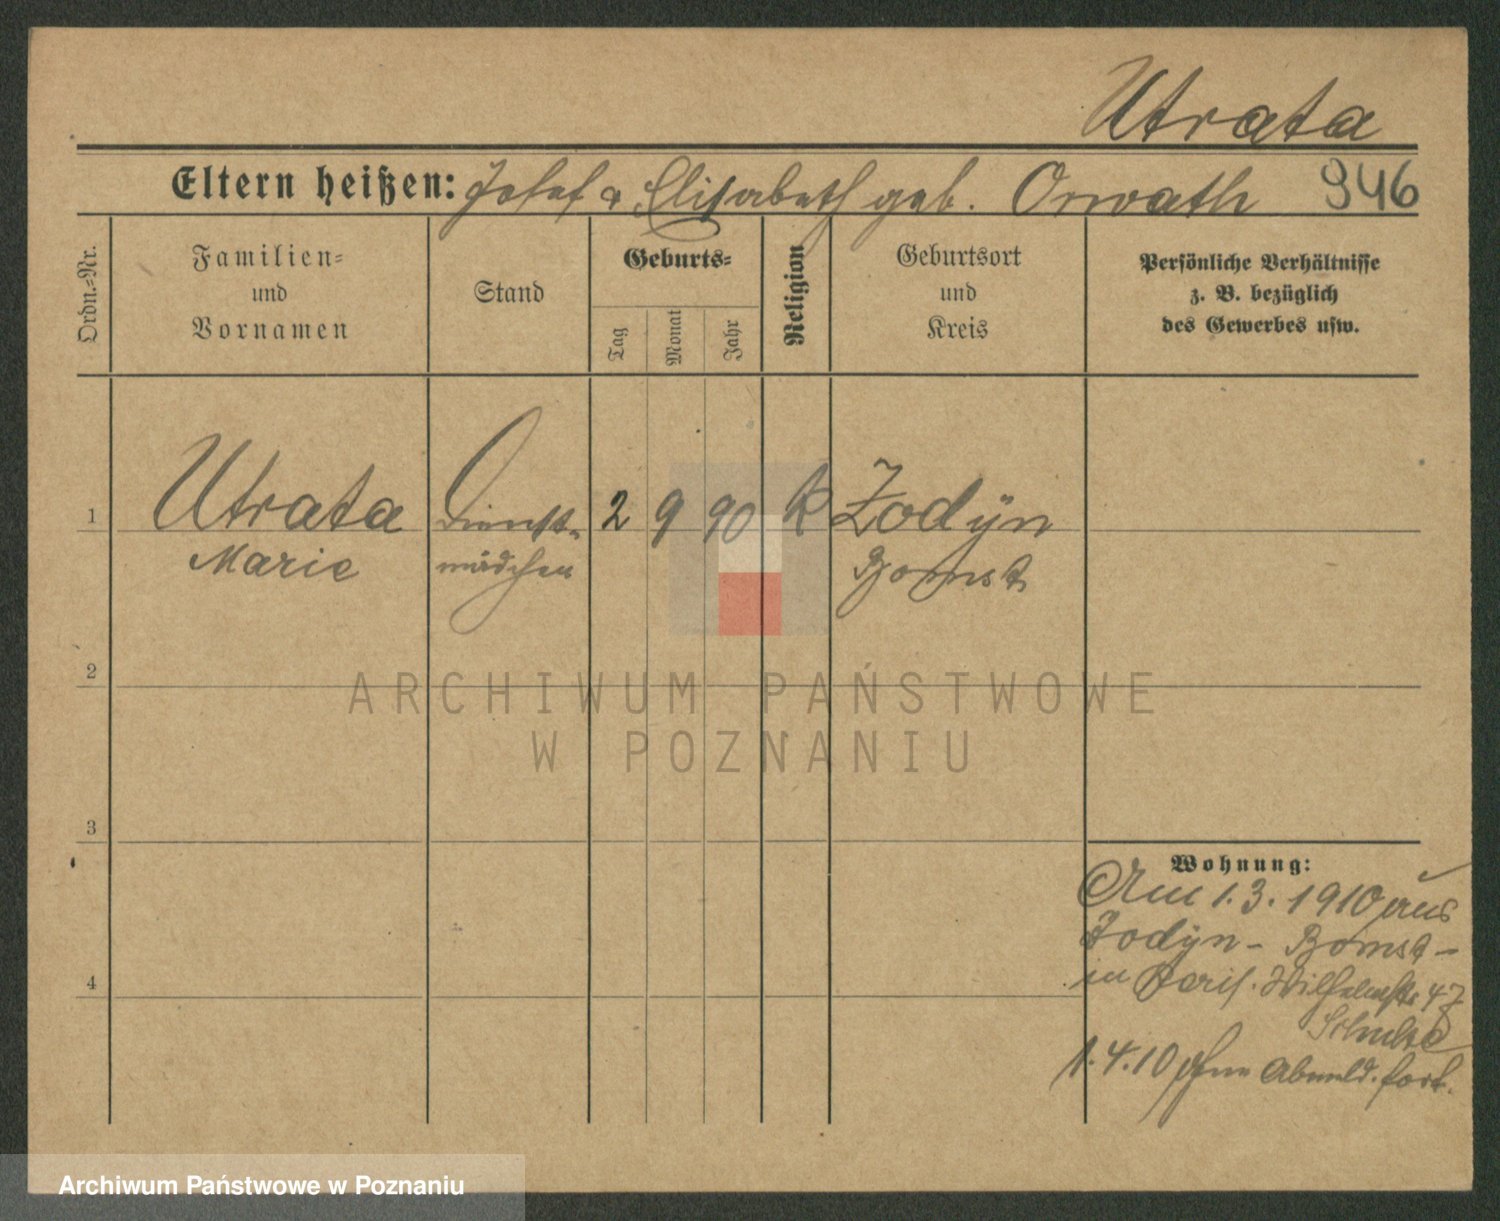 Utrata
Eltern heißen: Josef & Elisabeth geb. Orwath 946
Ordn.-Nr.
Familien-
und
Vornamen
Stand
Geburts-
Tag
Monat
Jahr
Religion
Geburtsort
und
Kreis
Persönliche Verhältnisse
z. B. bezüglich
des Gewerbes usw.
1 Utrata Dienst- 2 9 90 k Zodÿn
Marie mädchen Bomst
2
ARCHIWUM PAŃSTWOWE
W POZNANIU
3
Wohnung:
Am 1.3.1910 aus
Zodÿn - Bomst -
4
in Wilhelmstr 47
Schulze
1.4.10 ohne Abmeld. fort.
Archiwum Państwowe w Poznaniu